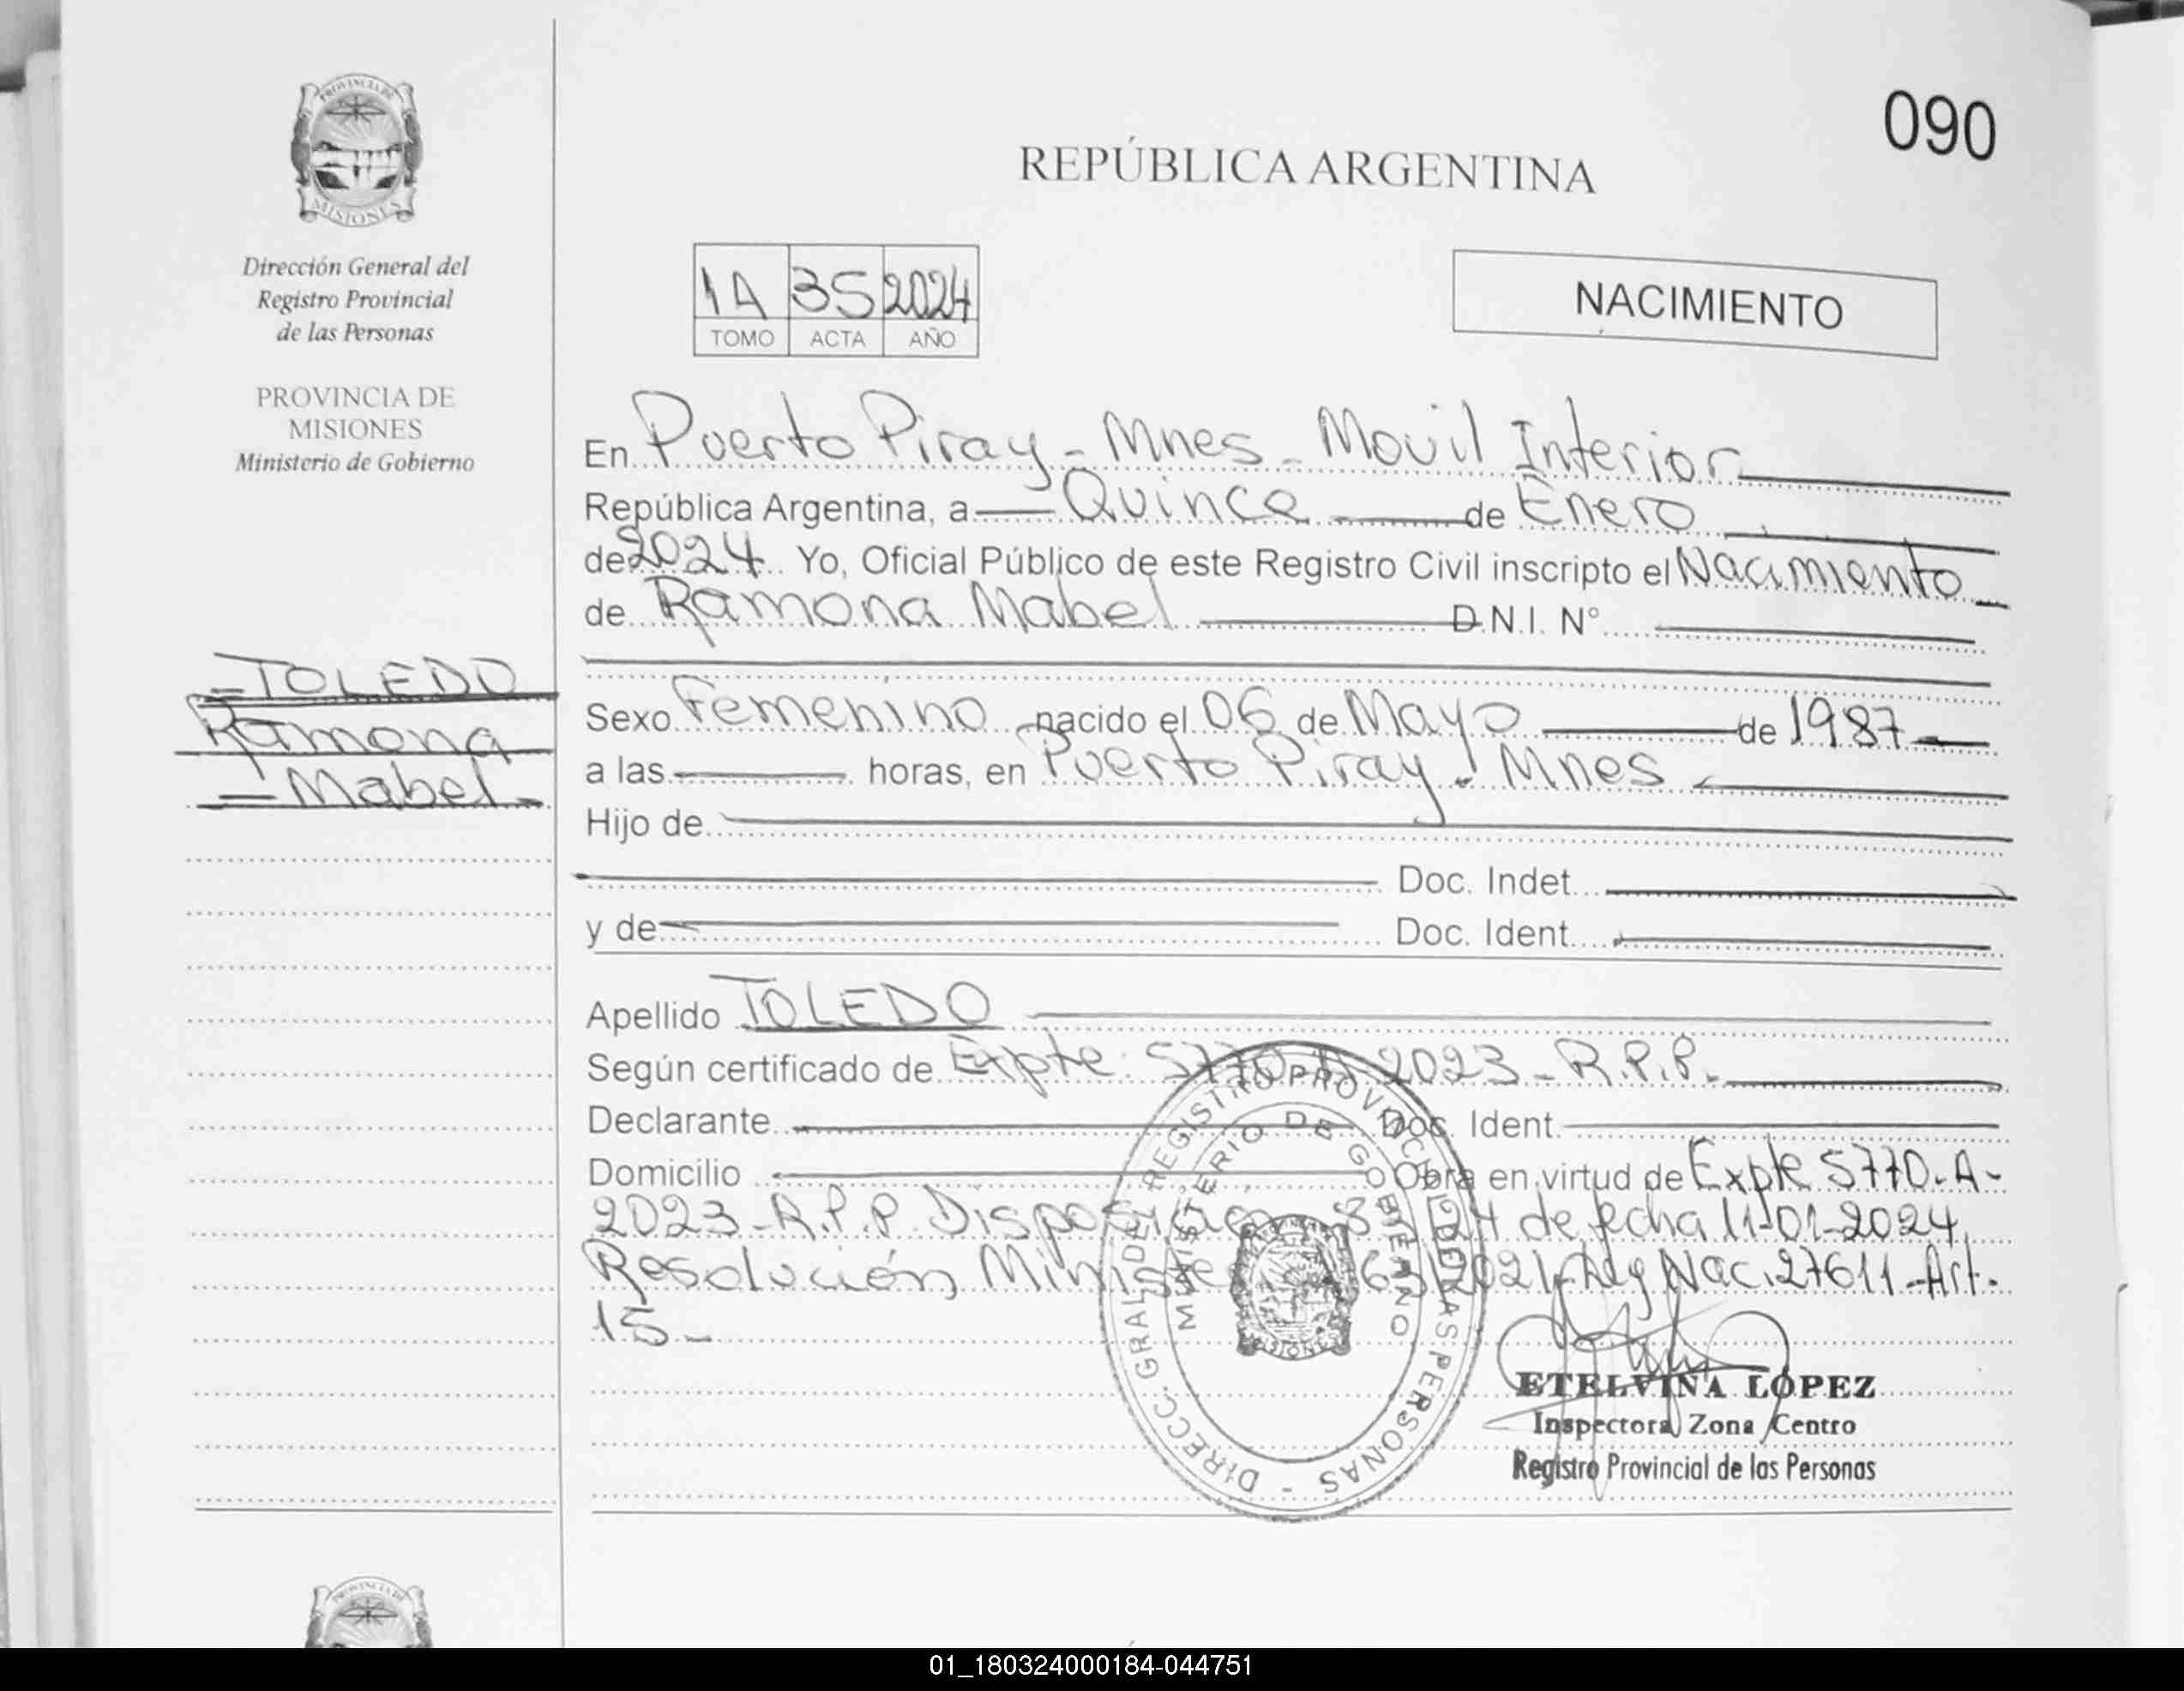 PROVINCIA DE
MISIONES
Dirección General del
Registro Provincial
de las Personas
PROVINCIA DE
MISIONES
Ministerio de Gobierno
TOLEDO
Ramona
Mabel
090
REPÚBLICA ARGENTINA
1A 35 2024
TOMO ACTA AÑO
NACIMIENTO
En Puerto Piray - Mnes - Movil Interior
República Argentina, a Quince de Enero
de 2024 Yo, Oficial Público de este Registro Civil inscripto el Nacimiento
de Ramona Mabel D.N.I. Nº
Sexo Femenino nacido el 06 de Mayo de 1987
a las horas, en Puerto Piray - Mnes
Hijo de
Doc. Indet.
y de Doc. Ident.
Apellido TOLEDO
Según certificado de Expte. 5770-A-2023-R.P.P.
Declarante Doc. Ident.
Domicilio Obra en virtud de Expte 5770-A-
2023-R.P.P. Disposición de fecha 11-01-2024
Resolución 2021 - Ley Nac. 27611-Art.
15-
DIRECC. GRAL. DEL REGISTRO PROVINCIAL DE LAS PERSONAS
MINISTERIO DE GOBIERNO
ETELVINA LÓPEZ
Inspectora Zona Centro
Registro Provincial de las Personas
01_180324000184-044751